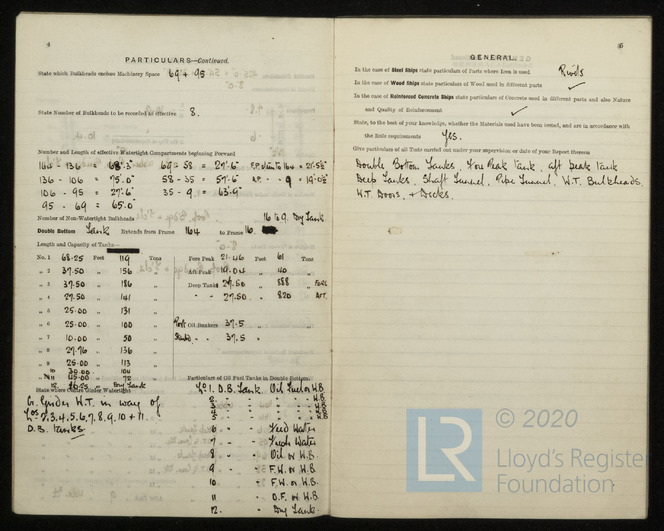 4
PARTICULARS—Continued.
State which Bulkheads enclose Machinery Space 69 + 95
State Number of Bulkheads to be recorded as effective 8.
Number and Length of effective Watertight Compartments beginning Forward
164 - 136 = 68'.3" 69 - 58 = 27'-6" F.P. stem to 164 = 21'-5½"
136 - 106 = 75'.0" 58 - 35 = 57'-6" A.P. - 9 = 19-0½"
106 - 95 = 27'-6" 35 - 9 = 63'-9"
95 - 69 = 65'.0"
Number of Non-Watertight Bulkheads 16 to 9. Dry Tank
Double Bottom Tank Extends from Frame 164 to Frame 16.
Length and Capacity of Tanks—
No. 1 68.25 Feet 119 Tons
„ 2 37.50 „ 156 „
„ 3 37.50 „ 186 „
„ 4 27.50 „ 141 „
„ 5 25.00 „ 131 „
„ 6 25.00 „ 100 „
„ 7 10.00 „ 50 „
„ 8 27.76 „ 136 „
„ 9 25.00 „ 113 „
10 30.00 104
11 25.00 72
12. Dry Tank
Fore Peak 21.46 Feet 61 Tons
Aft Peak 19.04 „ 40 „
Deep Tanks 27.50 „ 888 „ FORD.
„ - 27.50 „ 820 AFT.
Port Oil Bunkers 37.5 „
Starbd. „ 37.5 „
State where Centre Girder Watertight
C. Girder W.T. in way of
Nos 2, 3, 4. 5, 6. 7, 8. 9, 10 + 11.
D.B. tanks.
Particulars of Oil Fuel Tanks in Double Bottom:
No 1. D.B. Tank Oil Fuel or W.B.
2. - - - W.B.
3 - - - W.B.
4 - - - W.B.
5 - - - W.B.
6 - - Feed Water
7 - - Fresh Water
8 - - Oil or W.B.
9 - - F.W. or W.B.
10 - - F.W. or W.B.
11 - - O.F. or W.B.
12. - Dry Tank
5
GENERAL.
In the case of Steel Ships state particulars of Parts where Iron is used Rivets
In the case of Wood Ships state particulars of Wood used in different parts
In the case of Reinforced Concrete Ships state particulars of Concrete used in different parts and also Nature
and Quality of Reinforcement
State, to the best of your knowledge, whether the Materials used have been tested, and are in accordance with
the Rule requirements Yes.
Give particulars of all Tests carried out under your supervision or date of your Report thereon
Double Bottom Tanks. Fore Peak tank, aft peak tank
Deep Tanks. Shaft Tunnel, Pipe Tunnel, W.T. Bulkheads,
W.T. Doors, + Decks.
© 2020
LR
Lloyd's Register
Foundation